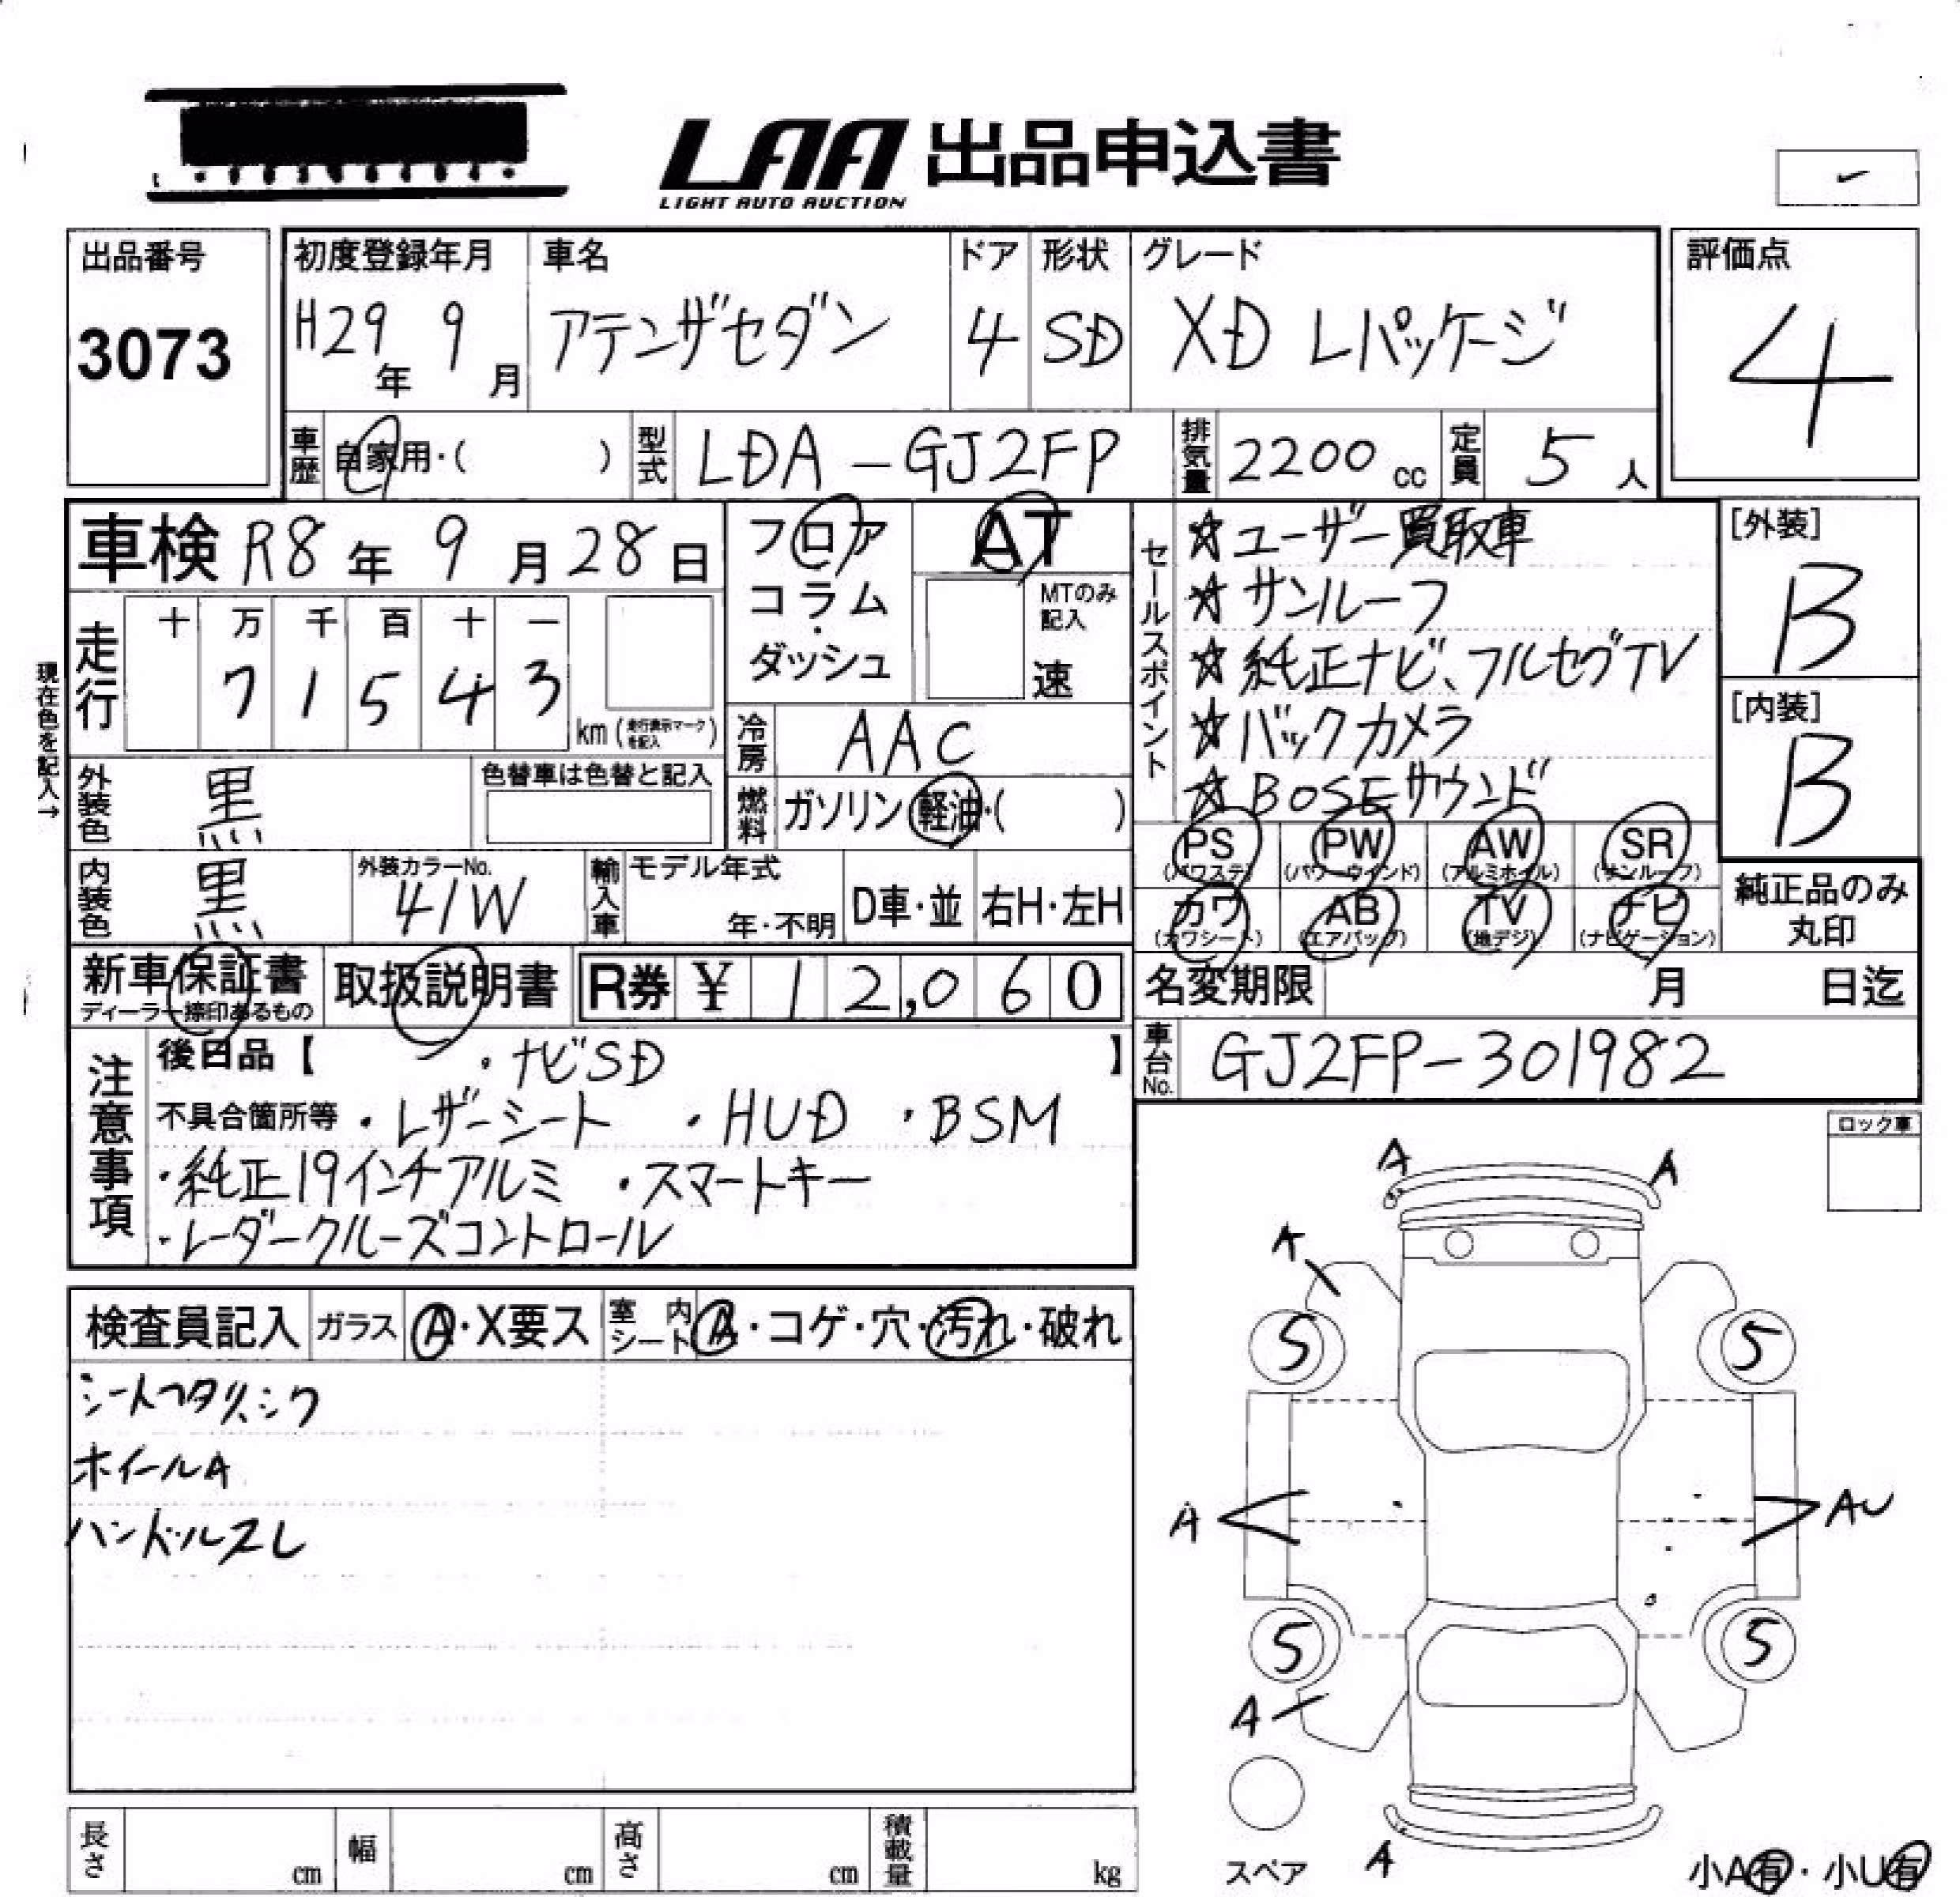 LAA 出品申込書
LIGHT AUTO AUCTION
出品番号
3073
初度登録年月
H29年 9月
車名
アテンザセダン
ドア
4
形状
SD
グレード
XD Lパッケージ
評価点
4
車歴 自家用・( )
型式 LDA-GJ2FP
排気量 2200 cc
定員 5 人
車検 R8年 9月28日
フロア
コラム
・
ダッシュ
AT
MTのみ
記入
速
走行
十 万 千 百 十 一
7 1 5 4 3
km (走行表示マークを記入)
現在色を記入→
冷房 AAC
燃料 ガソリン・軽油・( )
外装色 黒
色替車は色替と記入
内装色 黒
外装カラーNo.
41W
輸入車
モデル年式
年・不明
D車・並
右H・左H
セールスポイント
☆ユーザー買取車
☆サンルーフ
☆純正ナビ、フルセグTV
☆バックカメラ
☆BOSEサウンド
[外装]
B
[内装]
B
PS (パワステ)
PW (パワーウインド)
AW (アルミホイル)
SR (サンルーフ)
カワ (カワシート)
AB (エアバッグ)
TV (地デジ)
ナビ (ナビゲーション)
純正品のみ
丸印
新車保証書
ディーラー捺印あるもの
取扱説明書
R券 ¥ 12,060
名変期限 月 日迄
車台No. GJ2FP-301982
注意事項
後日品【 ・ナビSD 】
不具合箇所等 ・レザーシート ・HUD ・BSM
・純正19インチアルミ ・スマートキー
・レーダークルーズコントロール
ロック車
検査員記入
ガラス A・X要ス
室内シート A・コゲ・穴・汚れ・破れ
ホイールA
ハンドルスレ
A A
A
5 5
A AU
5 5
A
スペア
A
小A有・小U有
長さ cm
幅 cm
高さ cm
積載量 kg